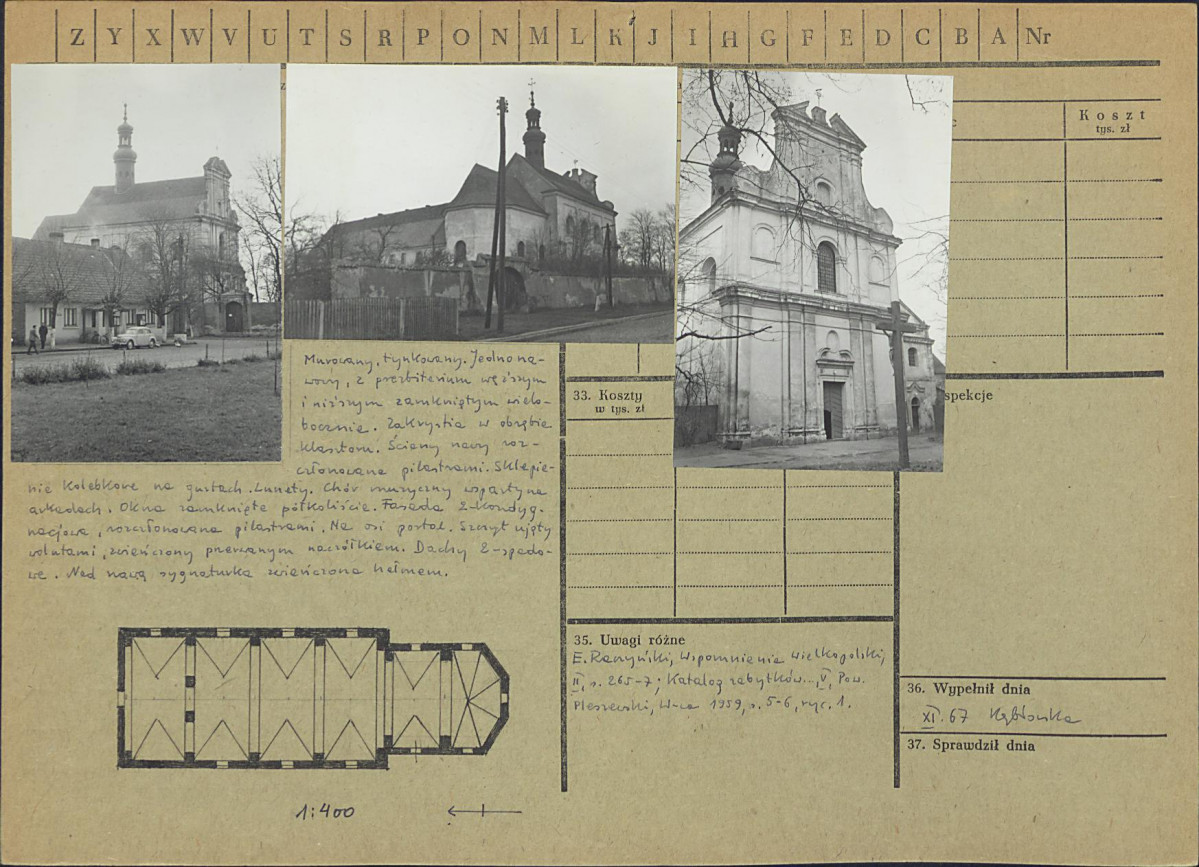 Z Y X W V U T S R P O N M L K J I H G F E D C B A Nr
Koszt
tys. zł
Murowany, tynkowany. Jednona-
wowy, z prezbiterium węższym
i niższym zamkniętym wielo-
bocznie. Zakrystia w obrębie
klasztoru. Ściany nawy roz-
członowane pilastrami. Sklepie-
nie kolebkowe na gurtach. Lunety. Chór muzyczny wsparty na
arkadach. Okna zamknięte półkoliście. Fasada 2-kondyg-
nacjowa, rozczłonowana pilastrami. Na osi portal. Szczyt ujęty
wolutami, zwieńczony przerwanym naczółkiem. Dachy 2-spado-
we. Nad nawą sygnaturka zwieńczona hełmem.
1:400
33. Koszty
w tys. zł
35. Uwagi różne
E. Raczyński, Wspomnienia Wielkopolski,
II, s. 265-7; Katalog zabytków..., V, Pow.
Pleszewski, W-wa 1959, s. 5-6, ryc. 1.
spekcje
36. Wypełnił dnia
XI. 67
37. Sprawdził dnia